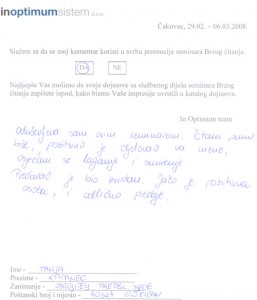 inoptimumsistem d.o.o.
Čakovec, 29.02. – 06.03.2008.
Slažem se da se moj komentar koristi u svrhu promocije seminara Brzog čitanja.
DA NE
Najljepše Vas molimo da svoje dojmove sa službenog dijela seminara Brzog
čitanja zapišete ispod, kako bismo Vaše impresije uvrstili u katalog dojmova.
In Optimum team
Oduševljena sam ovim seminarom. Čitam puno
brže, pozitivno je djelovao na mene,
osjećam se laganije i smirenije.
Predavač je bio odličan. Jako je pozitivna
osoba, i odlično predaje.
Ime - TANJA
Prezime -
Zanimanje -
Poštanski broj i mjesto -